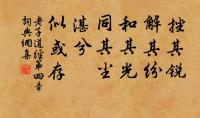 挫其銳
解其紛
和其光
同其塵
湛兮
似或存
老子道經第四章
詞典網集